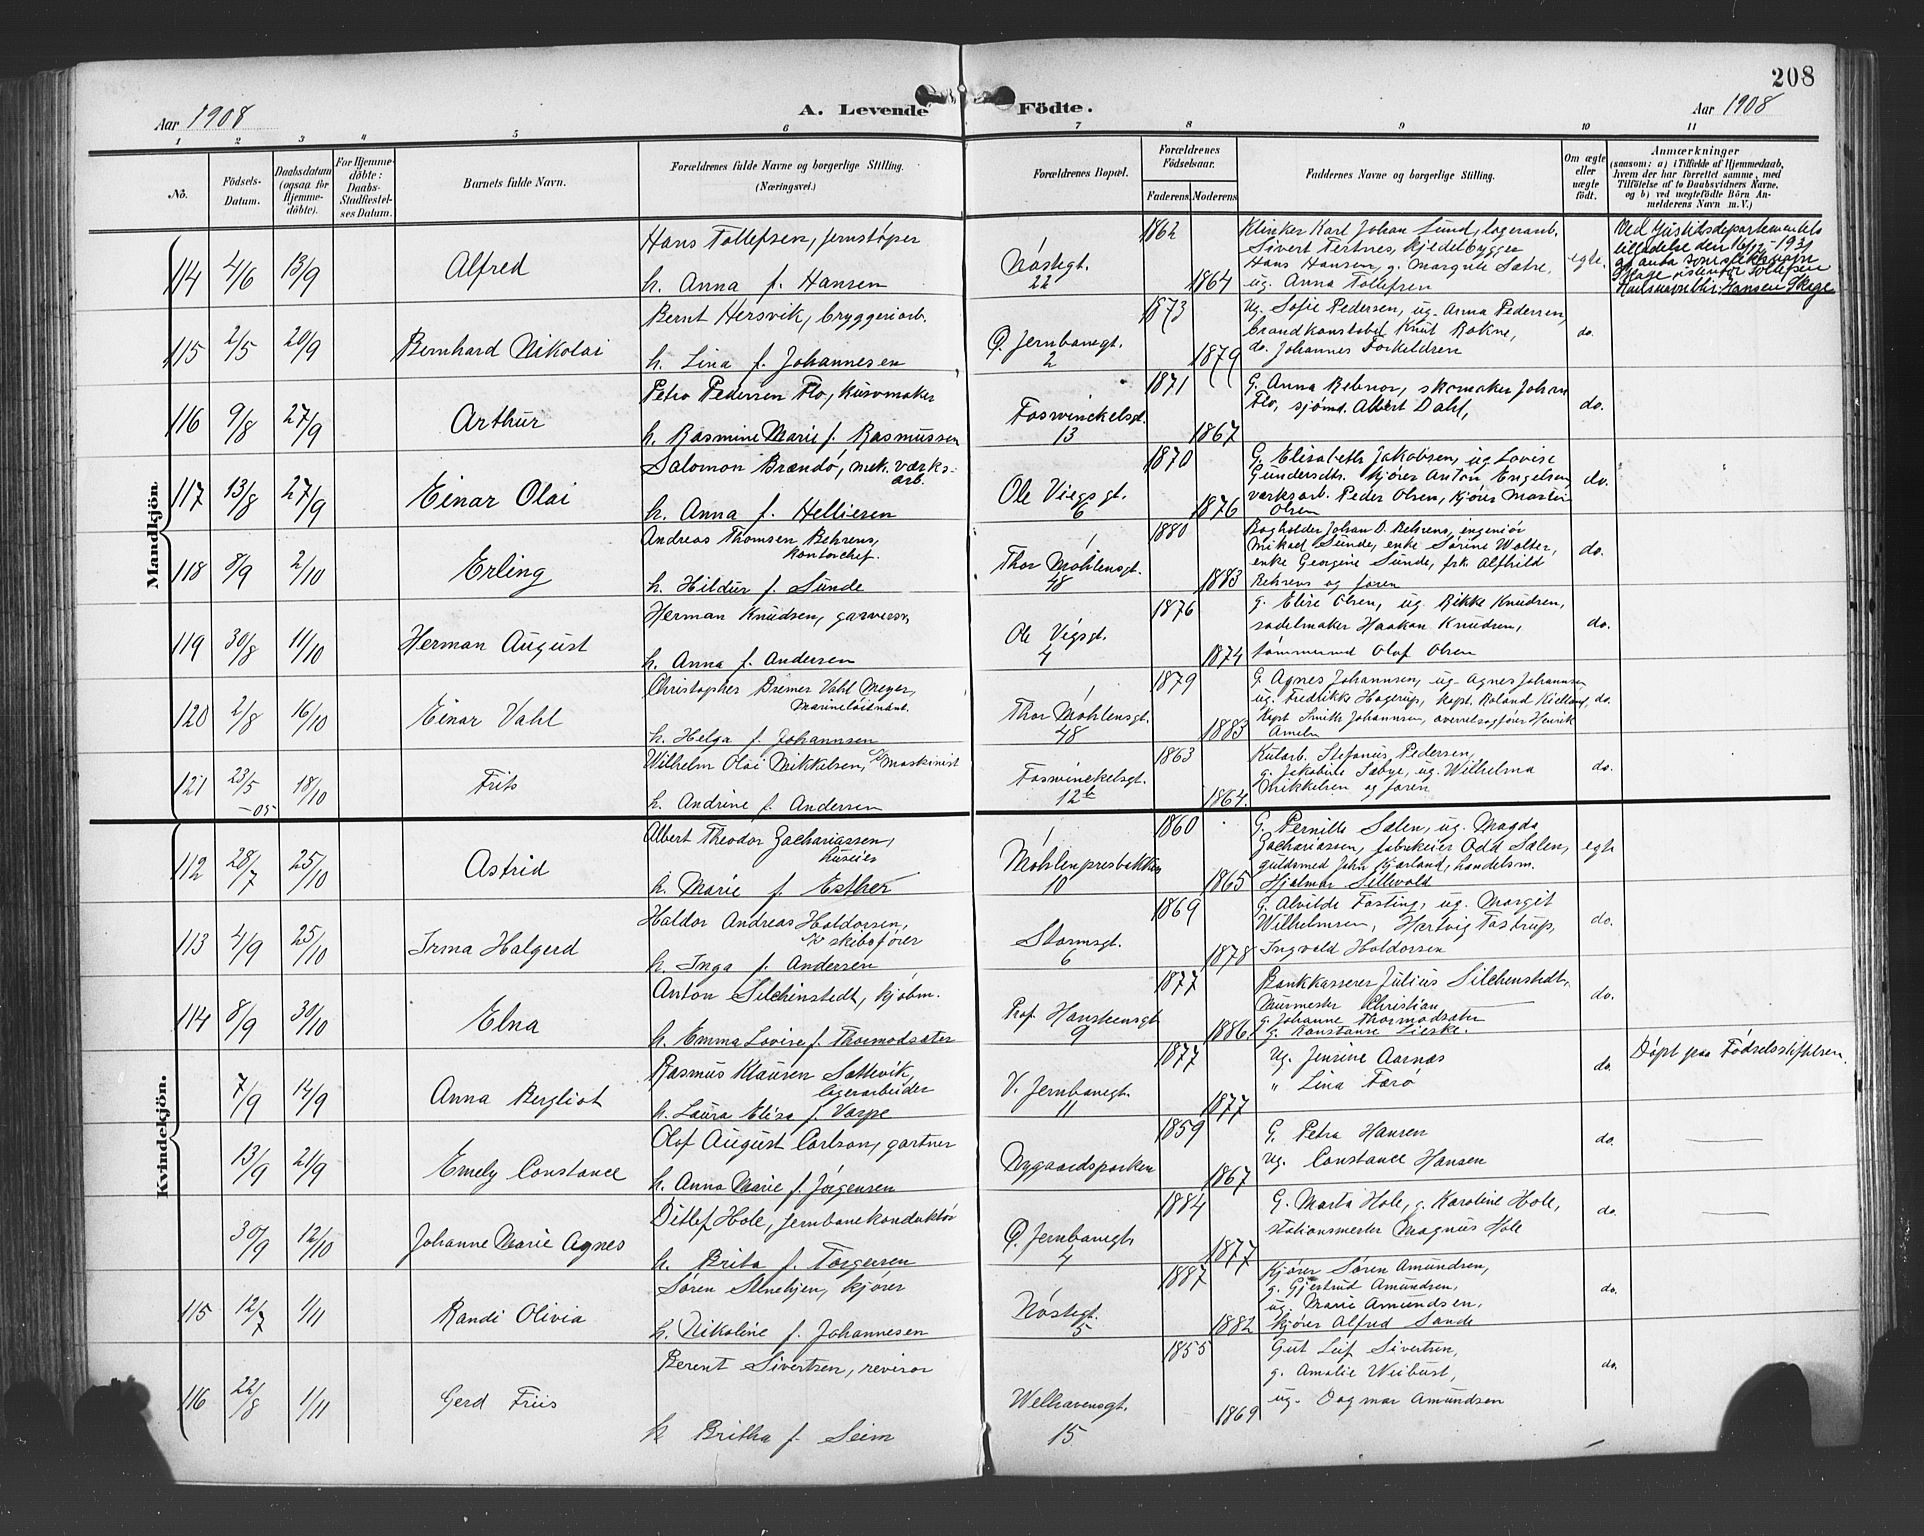 208
Aar 1908
A. Levende Födte.
Aar 1908
1 2 3 4 5 6 7 8 9 10 11
No.
Födsels-Datum.
Daabsdatum (ogsaa for Hjemme-döbte).
For Hjemme-döbte: Daabs-Stadfæstel-ses Datum.
Barnets fulde Navn.
Forældrenes fulde Navne og borgerlige Stilling. (Næringsvei.)
Forældrenes Bopæl.
Forældrenes Födselsaar.
Faderens. Moderens.
Faddernes Navne og borgerlige Stilling.
Om ægte eller uægte födt.
Anmærkninger
(saasom: a) i Tilfælde af Hjemmedaab, hvem der har forrettet samme, med Tilföielse af to Daabsvidners Navne, og b) ved uægtefödte Börn Anmelderens Navn m. V.)
Mandkjön.
114 4/6 13/9 Alfred
Hans Tollefsen, jernstøper
h. Anna f. Hansen
Nøstegt. 22
1862 1864
Klinker Karl Johan Lund, lagerarb.
Sivert Tertnes, kjedelbygger
Hans Hansen, g. Margrete Sætre,
ug. Anna Tollefsen
egte.
Ved Justitsdepartementets
tilladelse den 16/12-1931
at anta som slektsnavn
Skage istenfor Tollefsen
Hansen Skage
115 2/5 20/9 Bernhard Nikolai
Bernt Hersvik, bryggeriarb.
h. Lina f. Johannesen
Ø. Jernbanegt. 2
1873 1879
Ug. Sofie Pedersen, ug. Anna Pedersen,
brandkonstabel Knut Rokne,
do. Johannes Torkeldsen
do.
116 9/8 27/9 Arthur
Petro Pedersen Flo, husvmaker
h. Rasmine Marie f. Rasmussen
Fosvinckelsgt. 13
1871 1867
G. Anna Rebnor, skomaker Johan
Flo, sjømd. Albert Dahl,
do.
117 13/8 27/9 Einar Olai
Salomon Brandø, mek. værks-
arb.
h. Anna f. Helliesen
Ole Viegsgt. 6
1870 1876
G. Elisabeth Jakobsen, ug. Lovise
Gundersdtr. kjører Anton Engelsen
værksarb. Peder Olsen, kjører Martin
Olsen
do.
118 8/9 2/10 Erling
Andreas Thomsen Behrens,
kontorchef.
h. Hildur f. Sunde
Thor Møhlensgt. 48
1880 1883
Bogholder Johan D. Behrens, ingeniør
Mikael Sunde, enke Sørine Wolter,
enke Georgine Sunde, frk. Alfhild
Behrens og faren
do.
119 30/8 11/10 Herman August
Herman Knudsen, garversv.
h. Anna f. Andersen
Ole Vigsgt. 4
1876 1874
g. Elise Olsen, ug. Rikke Knudsen,
sadelmaker Haakon Knudsen,
tømmermd Olaf Olsen
do.
120 2/8 16/10 Einar Vahl
Christopher Bremer Vahl Meyer,
Marineløitnant.
h. Helga f. Johannsen
Thor Møhlensgt. 48
1879 1883
G. Agnes Johannsen, ug. Agnes Johannsen
ug. Fredrikke Hagerup, kapt. Roland Kielland,
Kapt. Smith Johannsen, overretssagfører Henrik
Ameln
do.
121 23/5 -05 18/10 Frits
Wilhelm Olai Mikkelsen, maskinist
h. Andrine f. Andersen
Fosvinckelsgt. 12b
1863 1864.
Kularb. Stefanus Pedersen,
g. Jakobine Sæbye, ug. Wilhelma
Mikkelsen og faren
do.
Kvindekjön.
112 28/7 25/10 Astrid
Albert Theodor Zachariassen,
huseier
h. Marie f. Esther
Møhlenpresbakken 10
1860 1865
G. Pernille Salen, ug. Magda
Zachariassen, fabrikeier Odd Salen,
guldsmed John Kjærland, handelsm.
Hjalmar Sellevold
egte
113 4/9 25/10 Irma Halgerd
Haldor Andreas Haldorsen,
skibsfører
h. Inga f. Andersen
Stormsgt. 6
1869 1878
G. Alvilde Fasting, ug. Margit
Wilhelmsen, Hartvig Tostrup,
Ingvald Haldorsen
do.
114 8/9 30/10 Elna
Anton Silchenstedt, kjøbm.
h. Emma Lovise f. Thormodsæter
Prof. Hansteensgt 9
1877 1886
Bankkasserer Julius Silchenstedt,
Murmester Christian
g. Johanne Thormodsæter
g. Konstanse Lieske.
do.
7/9 14/9 Anna Bergliot
Rasmus Klausen Sættevik,
lagerarbeider
h. Laura Elisa f. Varpe
V. Jernbanegt. 11
1877 1877
Ug. Jensine Aarnæs
" Lina Farø
do.
Døpt paa Fødselsstiftelsen.
13/9 21/9 Emely Constance
Olof August Carlson, gartner
h. Anna Marie f. Jørgensen
Nygaardsparken
1859 1867
G. Petra Hansen
Ug. Constance Hansen
do.
30/9 12/10 Johanne Marie Agnes
Ditlef Hole, jernbanekonduktør
h. Brita f. Torgersen
Ø. Jernbanegt. 4
1884 1877
G. Marta Hole, g. Karoline Hole,
stationsmester Magnus Hole
do.
115 12/7 1/11 Randi Olivia
Søren Stenehjem, kjører
h. Nikoline f. Johannesen
Nøstegt. 5
1887 1882
Kjører Søren Amundsen,
g. Gjertrud Amundsen,
ug. Marie Amundsen,
kjører Alfred Sande
do.
116 22/8 1/11 Gerd Friis
Berent Sivertsen, revisor
h. Britha f. Seim
Welhavensgt. 15
1855 1869
Gut Leif Sivertsen,
g. Amalie Weibust,
ug. Dagmar Amundsen
do.